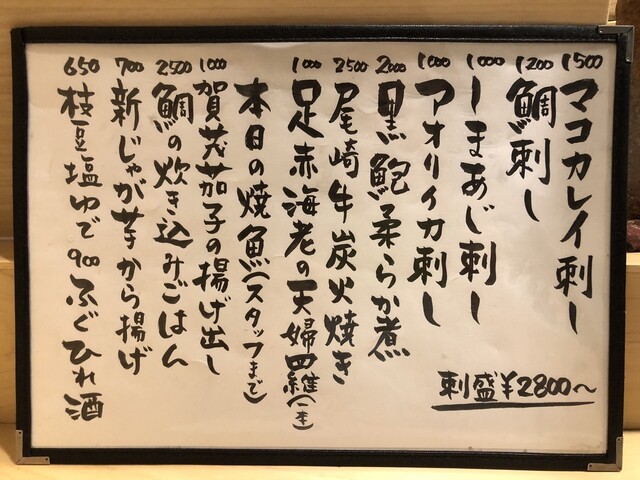 1500 マコカレイ刺し
1200 鯛刺し
1000 しまあじ刺し
1000 アオリイカ刺し
2000 黒鮑柔らか煮
2500 尾崎牛炭火焼き
1000 足赤海老の天婦羅(一本)
本日の焼魚(スタッフまで)
1000 賀茂茄子の揚げ出し
2500 鯛の炊き込みごはん
700 新じゃが芋から揚げ
650 枝豆塩ゆで 900 ふぐひれ酒
刺盛¥2800〜